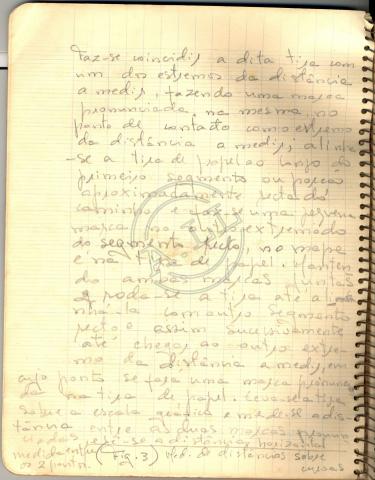 Faz-se coincidir a dita tira com
um dos extremos da distância
a medir, fazendo uma marca
pronunciada, na mesma, no
ponto de contacto com o extremo
da distância a medir; alinha
-se a tira de papel ao longo do
primeiro segmento ou porção
aproximadamente recta do
caminho e faz-se uma pequena
marca no outro extremo do
do segmento recto, no mapa
e na tira de papel. Manten
do ambas marcas juntas
roda-se a tira até ali
nhá-la com outro segmento
recto e assim sucessivamente
até chegar ao outro extre
mo da distância a medir, em
cujo ponto se fará uma marca pronuncia
da na tira de papel. Leva-se a tira
sobre a escala gráfica e mede-se a dis-
tância entre as duas marcas pronun
ciadas se a distância horizontal
medida entre (Fig. 3) Med. de distâncias sobre
os 2 pontos. curvas